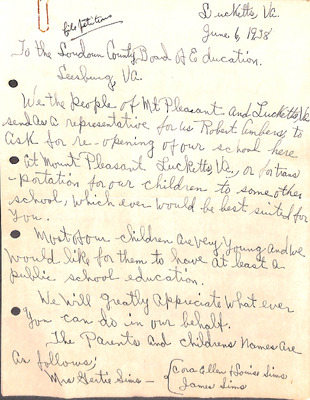 file petitions
Lucketts, Va.
June 6, 1938
To the Loudoun County Board of Education.
Leesburg, Va.
We the people of Mt Pleasant and Lucketts, Va
send as a representative for us Robert Ambers, to
ask for re-opening of our school here
at Mount Pleasant Lucketts Va, or for trans
-portation for our children to some other
school, which ever would be best suited for
you.
Most our children are very young and we
would like for them to have at least a
public school education.
We will greatly appreciate what ever
you can do in our behalf.
The Parents and childrens names are
as follows;
Mrs Gertie Sims — Cora Ellen & Louise Sims
James Sims